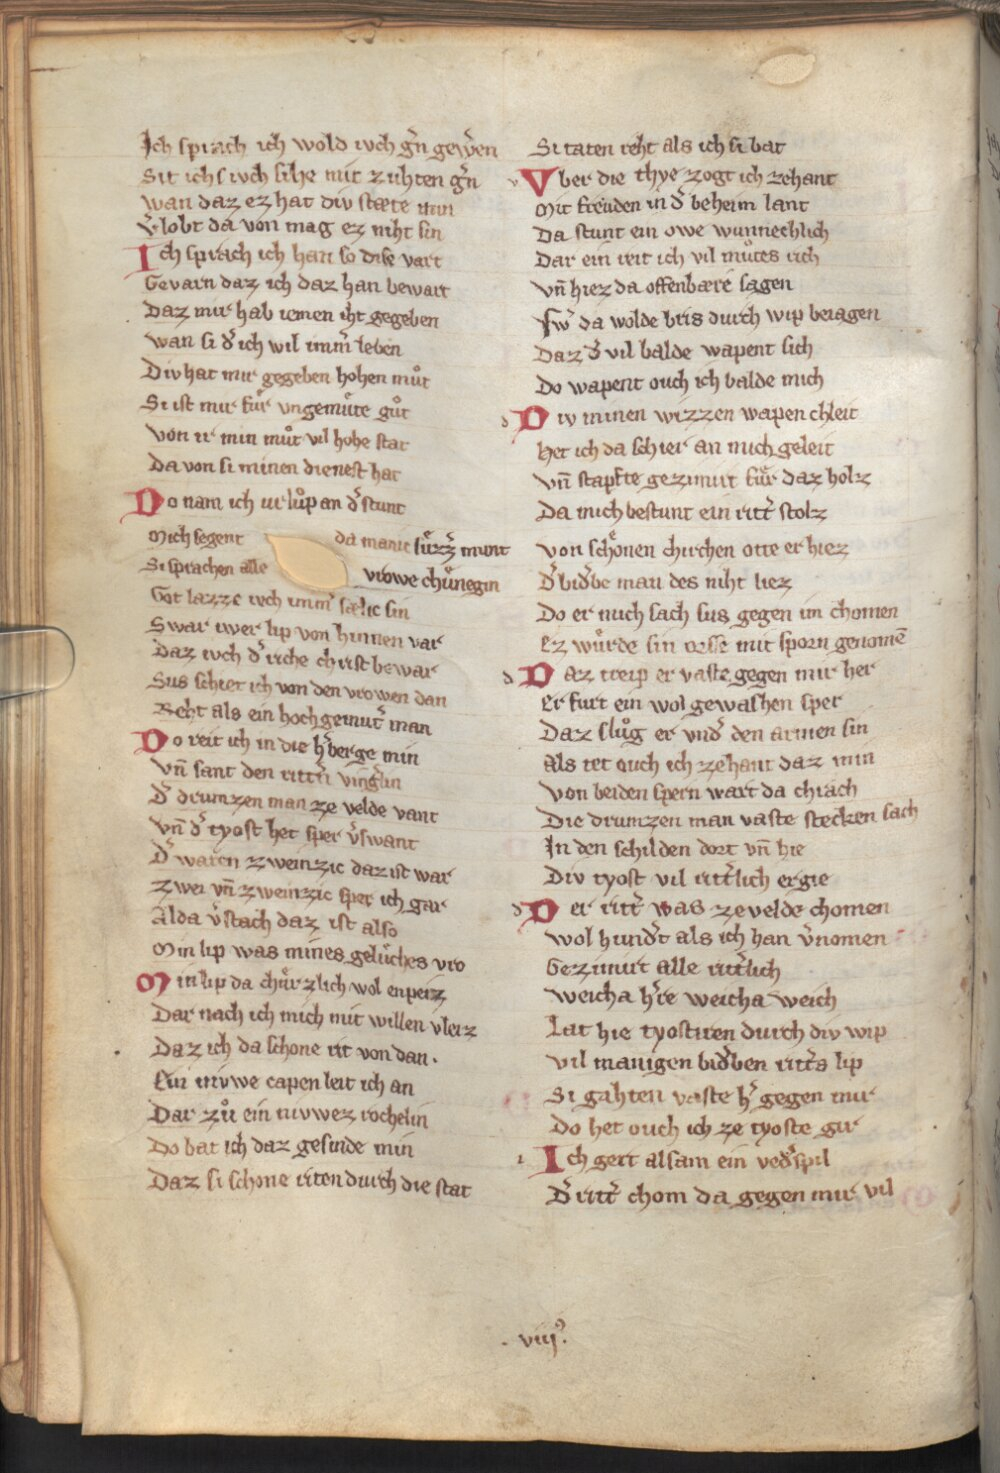 Ich sprach ich wold iuch gñ gewͤen
Sit ich s iuch sihe mit zuhten gñ
wan daz ez hat div stæte min
v̂lobt da von mag ez niht sin
Ich sprach ich han so dise vart
Gevarn daz ich daz han bewart
Daz mir hab iemen iht gegeben
wan si d̾ ich wil imm̾ leben
Div hat mir gegeben hohen muͦt
Si ist mir fuͤr vngemuͤte guͦt
von ir min muͦt vil hohe stat
Da von si minen dienest hat
Do nam ich urluͦp an d̾ stunt
Mich segent da manic suͤzz̾ munt
Si sprachen alle vrowe chuͤnegin
Got lazze iuch imm̾ sælic sin
Swar iwer lip von hinnen var
Daz iuch d̾ riche christ bewar
Sus schiet ich von den vrowen dan
Reht als ein hochgemut̾ man
Do reit ich in die h̾berge min
vñ sant den ritt̾n ving̾lin
D̾ drumzen man ze velde vant
vñ d̾ tyost het sper v̾swant
D̾ waren zweinzic daz ist war
zwei vñ zweinzic sper ich gar
Alda v̾stach daz ist also
Min lip was mines geluͤches vro
Min lip da chuͤrzlich wol enpeiz
Dar nach ich mich mit willen vleiz
Daz ich da schone rit von dan.
Ein nivwe capen leit ich an
Dar zuͦ ein nivwez rochelin
Do bat ich daz gesinde min
Daz si schone riten durch die stat
Si taten reht als ich si bat
v Vber die thye zogt ich zehant
Mit freuden in d̾ beheim lant
Da stunt ein owe wunnechlich
Dar ein reit ich vil muͦtes rich
vñ hiez da offenbære sagen
Sw̾ da wolde bris durch wip beiagen
Daz d̾ vil balde wapent sich
Do wapent ouch ich balde mich
d Div minen wizzen wapenchleit
Het ich da schier an mich geleit
vñ stapfte gezimirt fuͤr daz holz
Da mich bestunt ein ritt̾ stolz
von schoͤnen chirchen otte er hiez
D̾ bid̾be man des niht liez
Do er mich sach sus gegen im chomen
Ez wuͤrde sin orsse mit sporn genomē
d Daz treip er vaste gegen mir her
Er furt ein wol gewashen sper
Daz sluͦg er vnd̾ den armen sin
Als tet ouch ich zehant daz min
von beiden spern wart da chrach
Die drumzen man vaste stecken sach
In den schilden dort vñ hie
Div tyost vil ritt̾lich ergie
d Der ritt̾ was ze velde chomen
wol hund̾t als ich han v̾nomen
Gezimirt alle ritt̾lich
weicha h̾re weicha weich
Lat hie tyostiren durch div wip
vil manigen bid̾ben ritt̾s lip
Si gahten vaste h̾ gegen mir
Do het ouch ich ze tyoste gir
i Ich gert alsam ein ved̾spil
D̾ ritt̾ chom da gegen mir vil
. viij⁹.